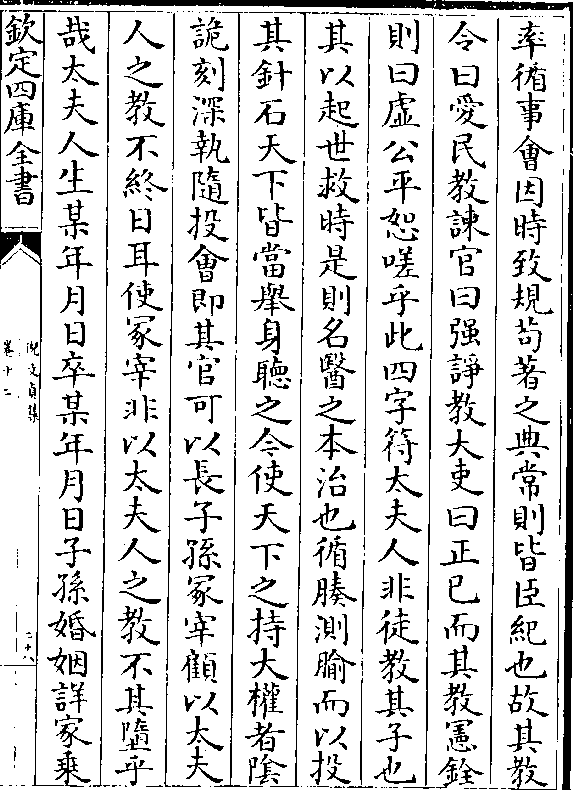 率循事會因時致規苟著之典常則皆臣紀也故其教
令曰愛民教諫官曰强諍教大吏曰正已而其教憲銓
則曰虛公平恕嗟乎此四字符太夫人非徒教其子也
其以起世救時是則名醫之本治也循腠測腧而以投
其針石天下皆當舉身聽之令使天下之持大權者陰
詭刻深執隨投會即其官可以長子孫冢宰顧以太夫
人之教不終日耳使冢宰非以太夫人之教不其墮乎
哉太夫人生某年月日卒某年月日子孫婚姻詳家乗
欽定四庫全書
倪文貞集
卷十二
二十八